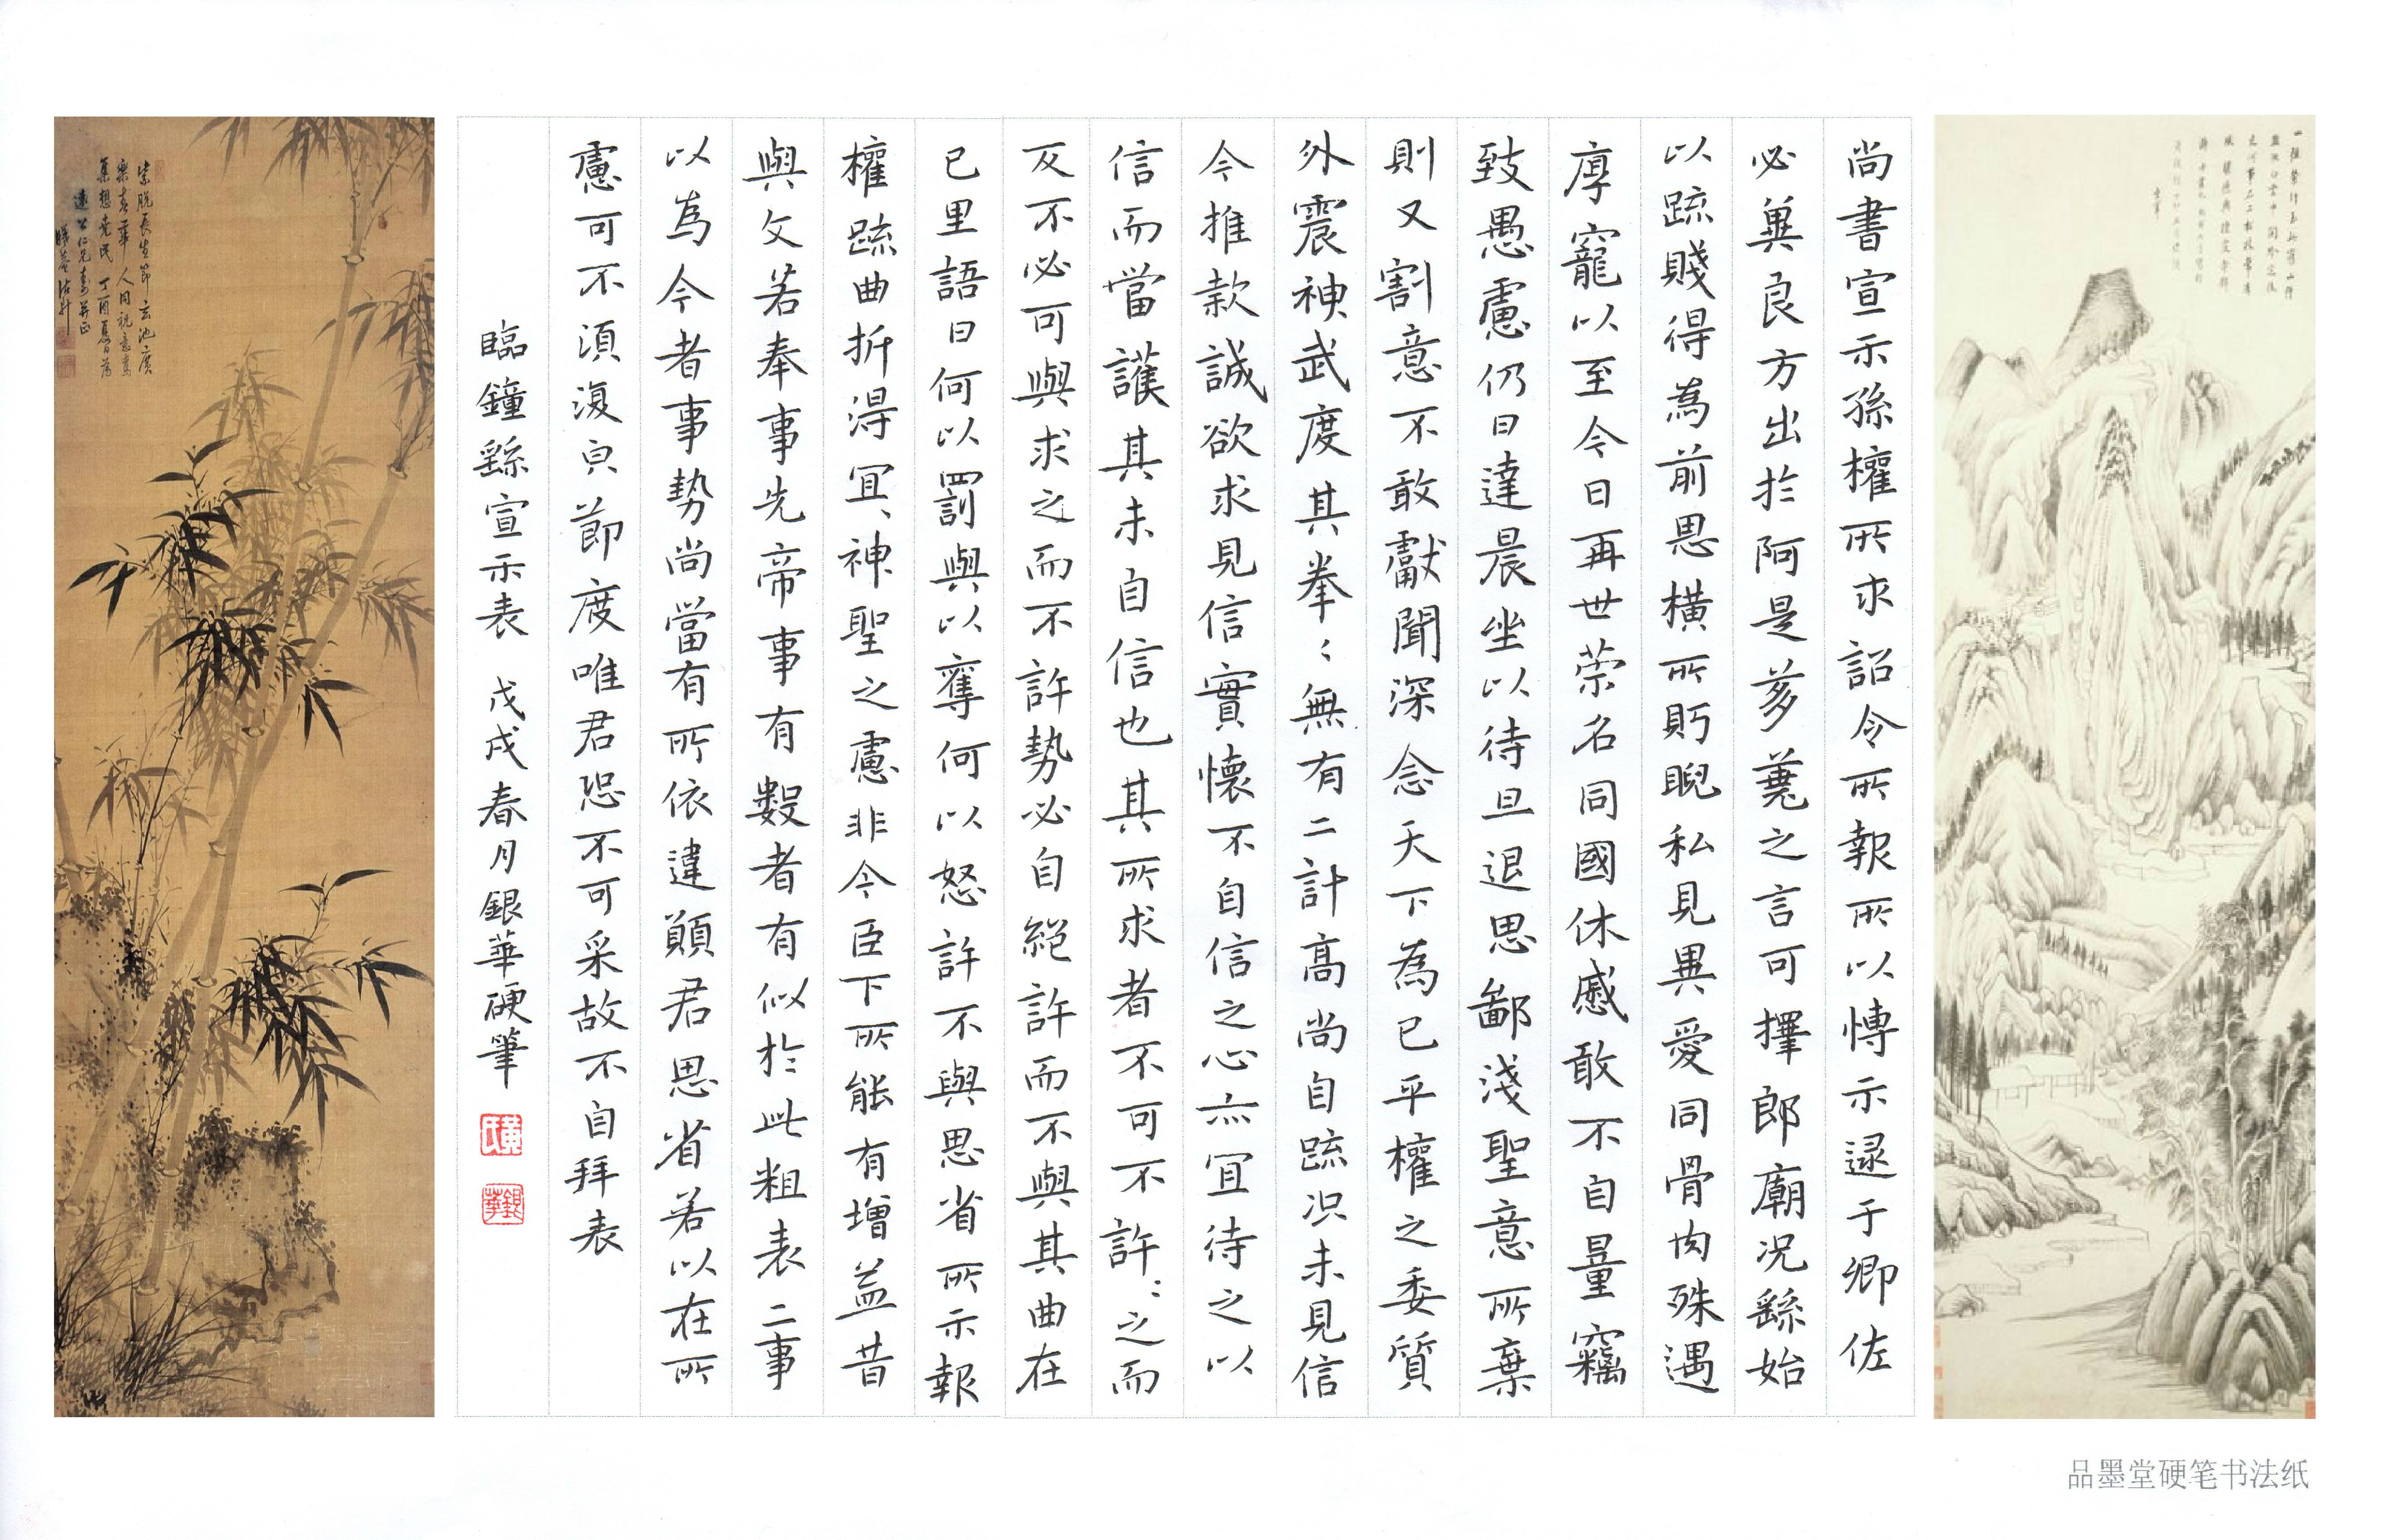 尚書宣示孫權所求詔令所報所以博示逮于卿佐
必兾良方出於阿是芻蕘之言可擇郎廟况繇始
以疏賤得為前恩橫所眄睨私見異愛同骨肉殊遇
厚寵以至今日再世荣名同國休慼敢不自量竊
致愚慮仍日達晨坐以待旦退思鄙淺聖意所棄
則又割意不敢獻聞深念天下為已平權之委質
外震神武度其拳〻無有二計高尚自疏况未見信
今推款誠欲求見信實懷不自信之心亦宜待之以
信而當護其未自信也其所求者不可不許〻之而
反不必可與求之而不許勢必自絕許而不與其曲在
已里語曰何以罰與以奪何以怒許不與思省所示報
權疏曲折得冝神聖之慮非今臣下所能有增益昔
與文若奉事先帝事有數者有似於此粗表二事
以為今者事勢尚當有所依違願君思省若以在所
慮可不須復皃節度唯君恐不可采故不自拜表
臨鐘繇宣示表 戊戌春月銀華硬筆
黃氏
銀華
品墨堂硬笔书法纸